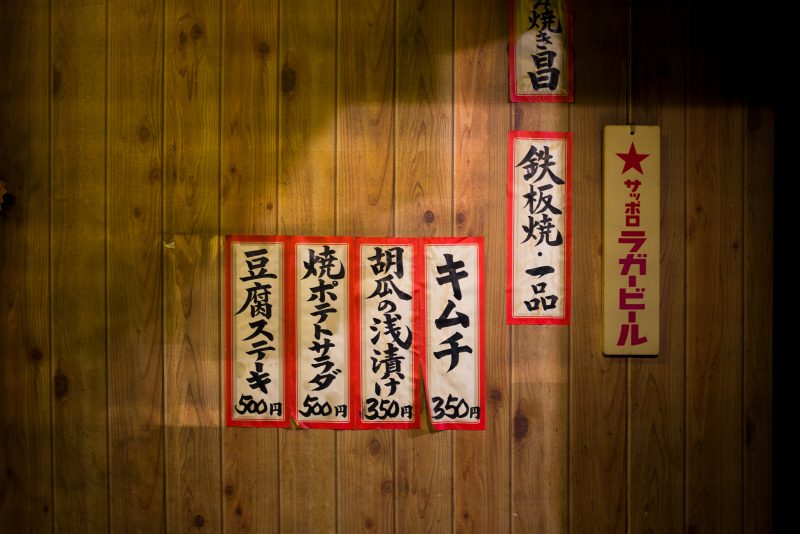 み焼き昌
鉄板焼・一品
サッポロ
ラガービール
キムチ
350円
胡瓜の浅漬け
350円
焼ポテトサラダ
500円
豆腐ステーキ
500円